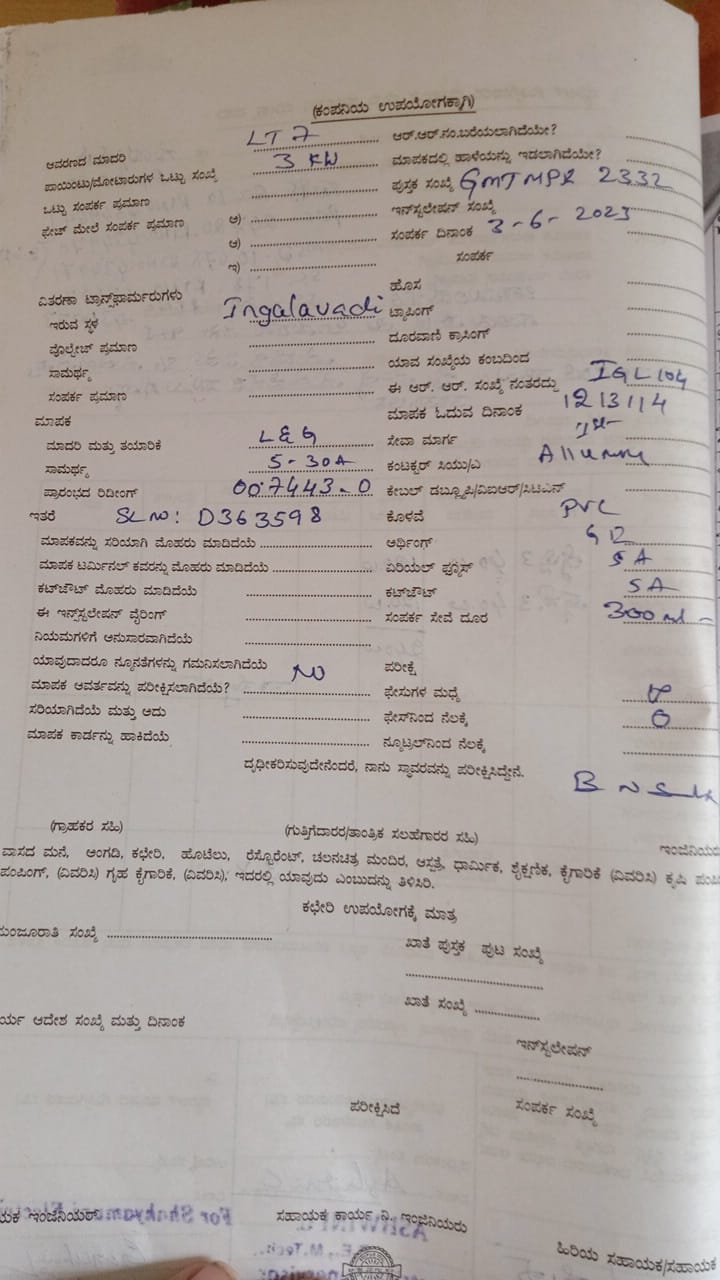 (ಕಂಪನಿಯ ಉಪಯೋಗಕ್ಕಾಗಿ)
ಆವರಣದ ಮಾದರಿ LT 7 ಆರ್.ಆರ್.ನಂ.ಬರೆಯಲಾಗಿದೆಯೇ?
ಪಾಯಿಂಟು/ಮೋಟಾರುಗಳ ಒಟ್ಟು ಸಂಖ್ಯೆ 3 KW ಮಾಪಕದಲ್ಲಿ ಹಾಳೆಯನ್ನು ಇಡಲಾಗಿದೆಯೇ?
ಒಟ್ಟು ಸಂಪರ್ಕ ಪ್ರಮಾಣ ಪುಸ್ತಕ ಸಂಖ್ಯೆ GMTMPR 2332
ಫೇಜ್ ಮೇಲೆ ಸಂಪರ್ಕ ಪ್ರಮಾಣ ಅ) ಇನ್‌ಸ್ಟಲೇಷನ್ ಸಂಖ್ಯೆ
ಆ) ಸಂಪರ್ಕ ದಿನಾಂಕ 3-6-2023
ಇ) ಸಂಪರ್ಕ
ವಿತರಣಾ ಟ್ರಾನ್ಸ್‌ಫಾರ್ಮರುಗಳು ಹೊಸ
ಇರುವ ಸ್ಥಳ Ingalavadi ಟ್ಯಾಪಿಂಗ್
ವೋಲ್ಟೇಜ್ ಪ್ರಮಾಣ ದೂರವಾಣಿ ಕ್ರಾಸಿಂಗ್
ಸಾಮರ್ಥ್ಯ ಯಾವ ಸಂಖ್ಯೆಯ ಕಂಬದಿಂದ
ಸಂಪರ್ಕ ಪ್ರಮಾಣ ಈ ಆರ್. ಆರ್. ಸಂಖ್ಯೆ ನಂತರದ್ದು IGL104
ಮಾಪಕ ಮಾಪಕ ಓದುವ ದಿನಾಂಕ 1213114
ಮಾದರಿ ಮತ್ತು ತಯಾರಿಕೆ L&G ಸೇವಾ ಮಾರ್ಗ
ಸಾಮರ್ಥ್ಯ 5-30A ಕಂಟಕ್ಟರ್ ಸಿಯು/ಎ
ಪ್ರಾರಂಭದ ರಿಡೀಂಗ್ 007443-0 ಕೇಬಲ್ ಡಬ್ಲ್ಯೂಪಿ/ವಿಐಆರ್/ಸಿಟಿಎಸ್
ಇತರೆ SL NO: D363598 ಕೊಳವೆ PVC
ಮಾಪಕವನ್ನು ಸರಿಯಾಗಿ ಮೊಹರು ಮಾಡಿದೆಯೆ ಅರ್ಥಿಂಗ್
ಮಾಪಕ ಟರ್ಮಿನಲ್ ಕವರನ್ನು ಮೊಹರು ಮಾಡಿದೆಯೆ ಏರಿಯಲ್ ಫ್ಯೂಸ್ 5A
ಕಟ್‌ಔಟ್ ಮೊಹರು ಮಾಡಿದೆಯೆ ಕಟ್‌ಔಟ್ 5A
ಈ ಇನ್ಸ್‌ಸ್ಟಲೇಷನ್ ವೈರಿಂಗ್ ಸಂಪರ್ಕ ಸೇವೆ ದೂರ
ನಿಯಮಗಳಿಗೆ ಅನುಸಾರವಾಗಿದೆಯೆ
ಯಾವುದಾದರೂ ನ್ಯೂನತೆಗಳನ್ನು ಗಮನಿಸಲಾಗಿದೆಯೆ NO ಪರೀಕ್ಷೆ
ಮಾಪಕ ಆವರ್ತವನ್ನು ಪರೀಕ್ಷಿಸಲಾಗಿದೆಯೆ? ಫೇಸುಗಳ ಮಧ್ಯೆ
ಸರಿಯಾಗಿದೆಯೆ ಮತ್ತು ಅದು ಫೇಸ್‌ನಿಂದ ನೆಲಕ್ಕೆ 0
ಮಾಪಕ ಕಾರ್ಡನ್ನು ಹಾಕಿದೆಯೆ ನ್ಯೂಟ್ರಲ್‌ನಿಂದ ನೆಲಕ್ಕೆ
ದೃಢೀಕರಿಸುವುದೇನೆಂದರೆ, ನಾನು ಸ್ಥಾವರವನ್ನು ಪರೀಕ್ಷಿಸಿದ್ದೇನೆ.
(ಗ್ರಾಹಕರ ಸಹಿ) (ಗುತ್ತಿಗೆದಾರರ/ತಾಂತ್ರಿಕ ಸಲಹೆಗಾರರ ಸಹಿ) ಇಂಜಿನಿಯರ
ವಾಸದ ಮನೆ, ಅಂಗಡಿ, ಕಛೇರಿ, ಹೊಟೆಲು, ರೆಸ್ಟೊರೆಂಟ್, ಚಲನಚಿತ್ರ ಮಂದಿರ, ಆಸ್ಪತ್ರೆ, ಧಾರ್ಮಿಕ, ಶೈಕ್ಷಣಿಕ, ಕೈಗಾರಿಕೆ (ವಿವರಿಸಿ) ಕೃಷಿ ಪಂಪಿ
ಪಂಪಿಂಗ್, (ವಿವರಿಸಿ) ಗೃಹ ಕೈಗಾರಿಕೆ, (ವಿವರಿಸಿ), ಇದರಲ್ಲಿ ಯಾವುದು ಎಂಬುದನ್ನು ತಿಳಿಸಿರಿ.
ಕಛೇರಿ ಉಪಯೋಗಕ್ಕೆ ಮಾತ್ರ
ಮಂಜೂರಾತಿ ಸಂಖ್ಯೆ ಖಾತೆ ಪುಸ್ತಕ ಪುಟ ಸಂಖ್ಯೆ
ಖಾತೆ ಸಂಖ್ಯೆ
ರ್ಯ ಆದೇಶ ಸಂಖ್ಯೆ ಮತ್ತು ದಿನಾಂಕ
ಇನ್‌ಸ್ಟಲೇಷನ್
ಪರೀಕ್ಷಿಸಿದೆ ಸಂಪರ್ಕ ಸಂಖ್ಯೆ
ಯಕ ಇಂಜಿನಿಯರ್ ಸಹಾಯಕ ಕಾರ್ಯ ನಿ. ಇಂಜಿನಿಯರು
ಹಿರಿಯ ಸಹಾಯಕ/ಸಹಾಯಕ